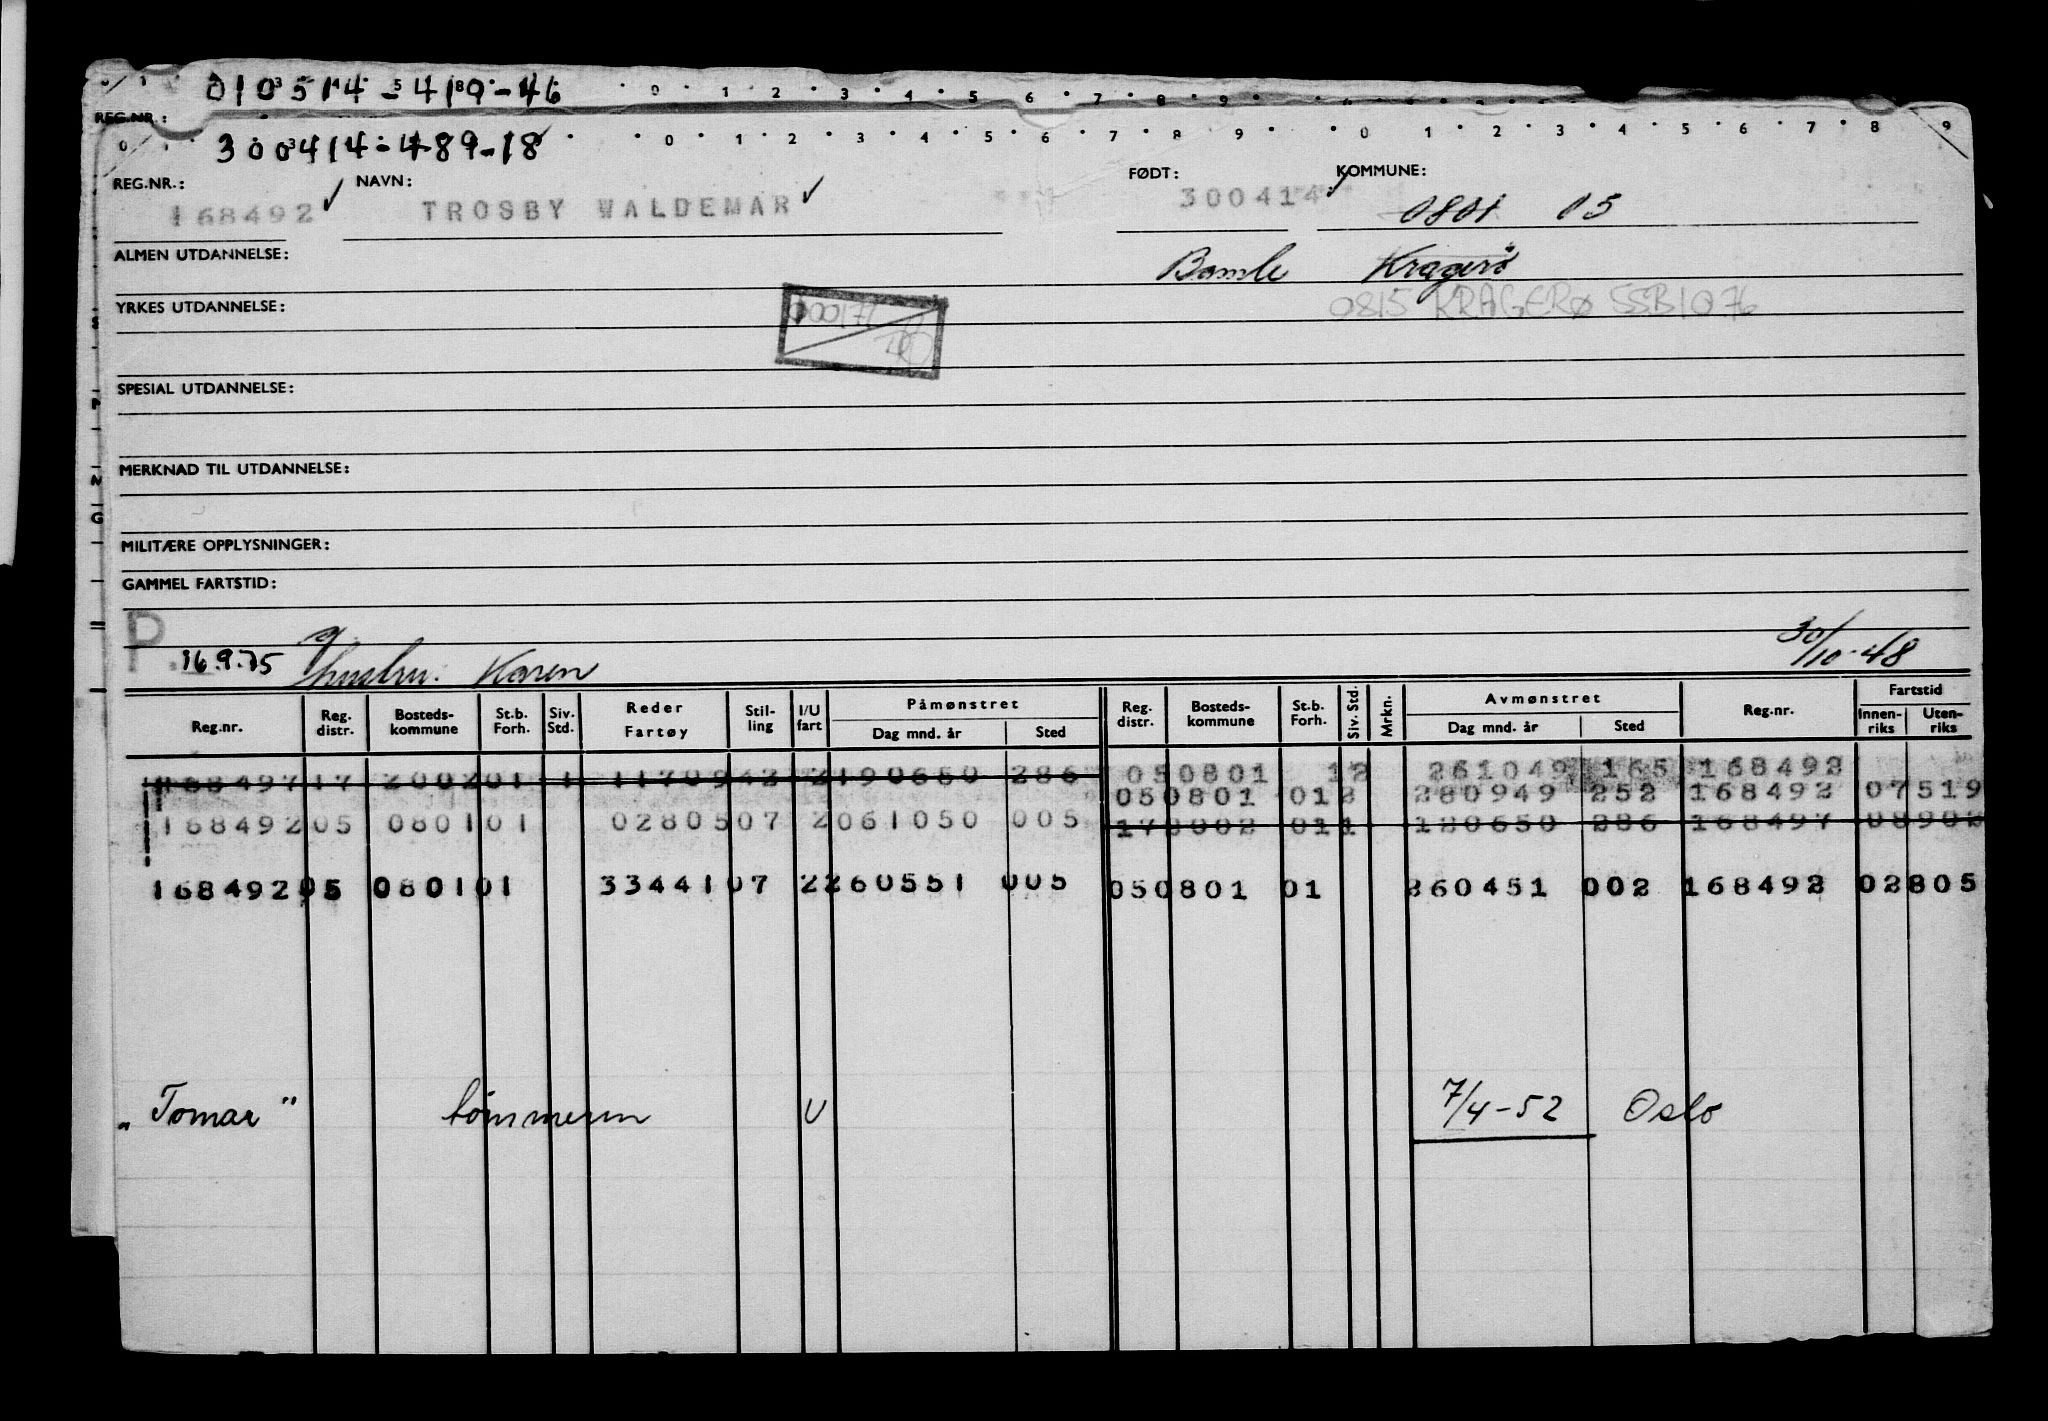 010514-419-46 0 1 2 3 4 5 6 7 8 9
REG.NR.:
300414-489-18 0 1 2 3 4 5 6 7 8 9 0 1 2 3 4 5 6 7 8 9
REG.NR.: NAVN: FØDT: KOMMUNE:
168492 TROSBY WALDEMAR 300414 0801 05
ALMEN UTDANNELSE: Bamle Kragerø
YRKES UTDANNELSE: 0815 KRAGERØ SSB1076
SPESIAL UTDANNELSE:
MERKNAD TIL UTDANNELSE:
MILITÆRE OPPLYSNINGER:
GAMMEL FARTSTID:
P. 16.9.75 g hustru: Karen 30/10-48
Reg.nr. Reg. distr. Bosteds-kommune St.b. Forh. Siv. Std. Reder Fartøy Stil-ling I/U fart Påmønstret Dag mnd. år Sted Reg. distr. Bosteds-kommune St.b. Forh. Siv. Std. Mrkn. Avmønstret Dag mnd. år Sted Reg.nr. Fartstid Innen-riks Uten-riks
168497 17 2002 01 1 11709 42 2 190650 286 05 0801 12 261049 165 168492
05 0801 01 2 280949 252 168492 07519
168492 05 0801 01 02805 07 2 061050 005 17 2002 01 1 180650 286 168497 08902
168492 05 0801 01 33441 07 2 260551 005 05 0801 01 260451 002 168492 02805
„Tomar" tømmerm U 7/4-52 Oslo